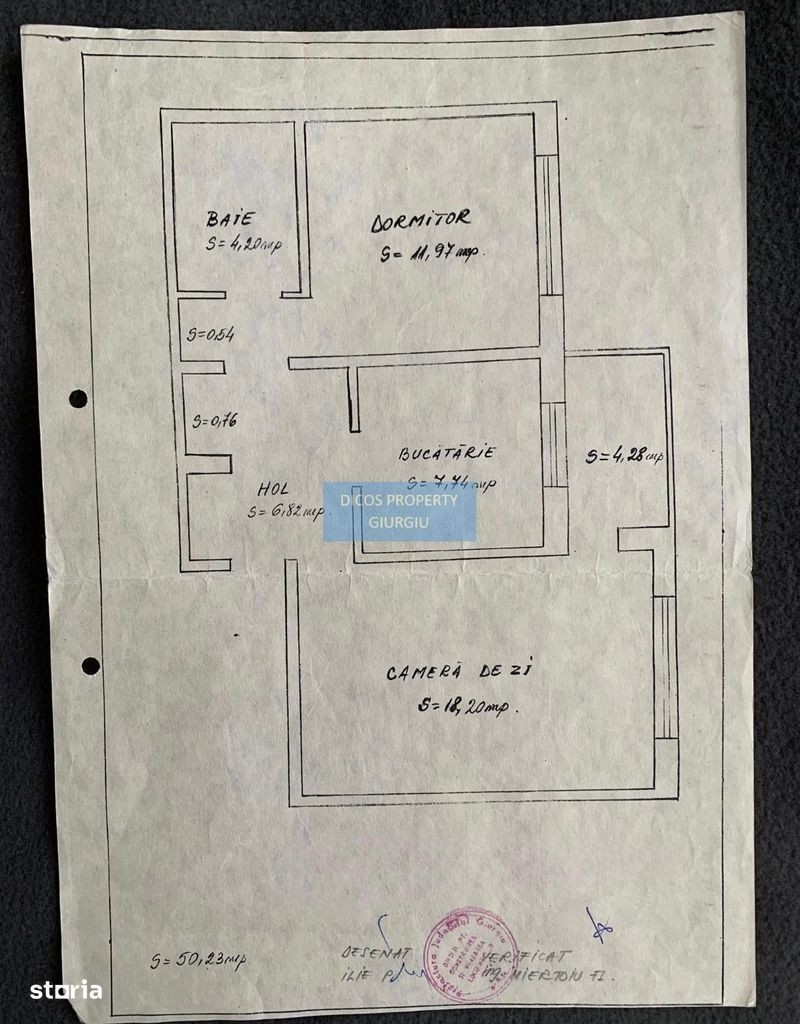 BAIE
S=4,20mp
DORMITOR
S=11,97mp.
S=0,54
S=0,76
BUCĂTĂRIE
S=7,74mp
S=4,28mp
HOL
S=6,82mp.
DICOS PROPERTY
GIURGIU
CAMERĂ DE ZI
S=18,20mp.
S=50,23mp
DESENAT
ILIE P.
VERIFICAT
ing. MIERTOIU FI.
Județului Giurgiu
storia